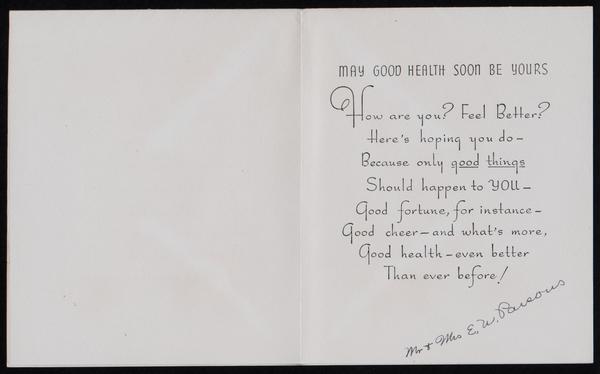 MAY GOOD HEALTH SOON BE YOURS
How are you? Feel Better?
Here's hoping you do—
Because only good things
Should happen to YOU—
Good fortune, for instance—
Good cheer—and what's more,
Good health—even better
Than ever before!
Mr + Mrs E. W. Parsons